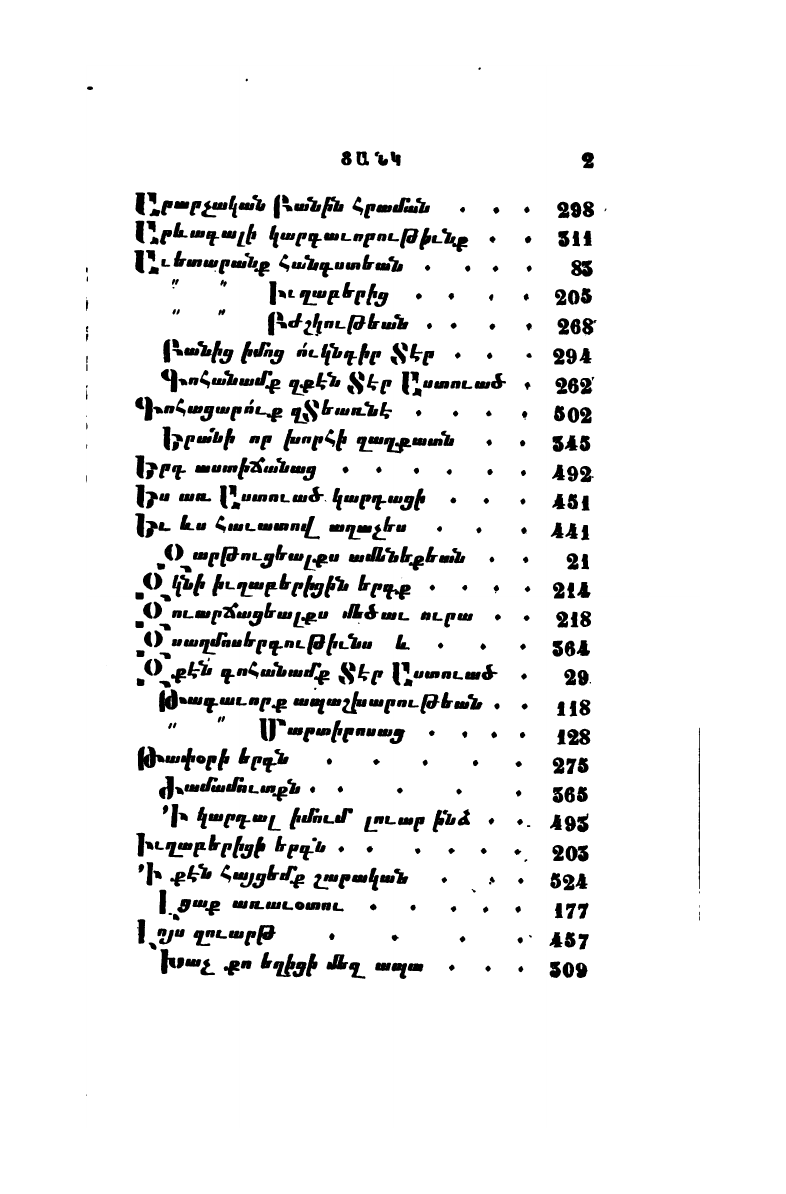 ՑԱՆԿ 2
Արարչական Բանին Հրաման . . . 298
Արևագալի կարգաւորութիւնք . . 311
Աւետարանք Հանգստեան . . . . 83
" " Իւղաբերից . . . . 205
" " Բժշկութեան . . . . 268
Բանից իմոց ունկնդիր Տէր . . . 294
Գոհանամք զքէն Տէր Աստուած . 262
Գոհացարուք զՏեառնէ . . . . 502
Երանի որ խորհի զաղքատն . . 345
Երգ աստիճանաց . . . . . . 492
Ես առ Աստուած կարդացի . . . 451
Եւ ևս Հաւատով աղաչես . . . 441
Զարթուցեալքս ամենեքեան . . 21
Զկնի իւղաբերիցին երգք . . . . 214
Զուարճացեալքս մեծաւ ուրա . . 218
Զսաղմոսերգութիւնս և . . . 364
Զքէն գոհանամք Տէր Աստուած . 29
Թագաւորք ապաշխարութեան . . 118
" " Մարտիրոսաց . . . . 128
Թափօրի երգն . . . . . 275
Ժամամուտքն . . . . . 365
՚Ի կարդալ իմում լուար ինձ . . 493
Իւղաբերիցի երգն . . . . . . . 203
՚Ի քէն Հայցեմք շարական . . . 524
Լցաք առաւօտու . . . . . 177
Լոյս զուարթ . . . . 457
Խաչ քո եղիցի մեզ ապա . . . 309